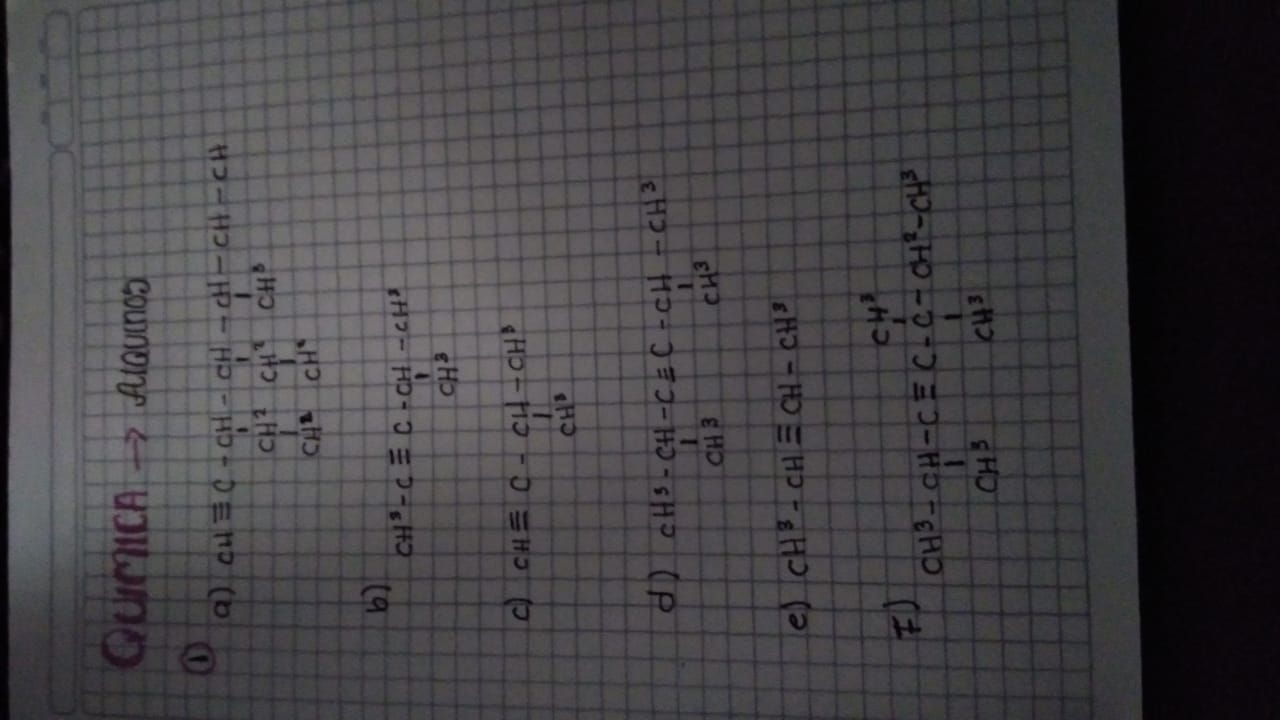 QUIMICA → Alquinos
①
a) CH≡C-CH-CH-CH-CH-CH
CH² CH² CH³
CH² CH²
b) CH³-C≡C-CH-CH³
CH³
c) CH≡C-CH-CH³
CH³
d) CH³-CH-C≡C-CH-CH³
CH³ CH³
e) CH³-CH≡CH-CH³
CH³
F) CH3-CH-C≡C-C-CH²-CH³
CH³ CH³